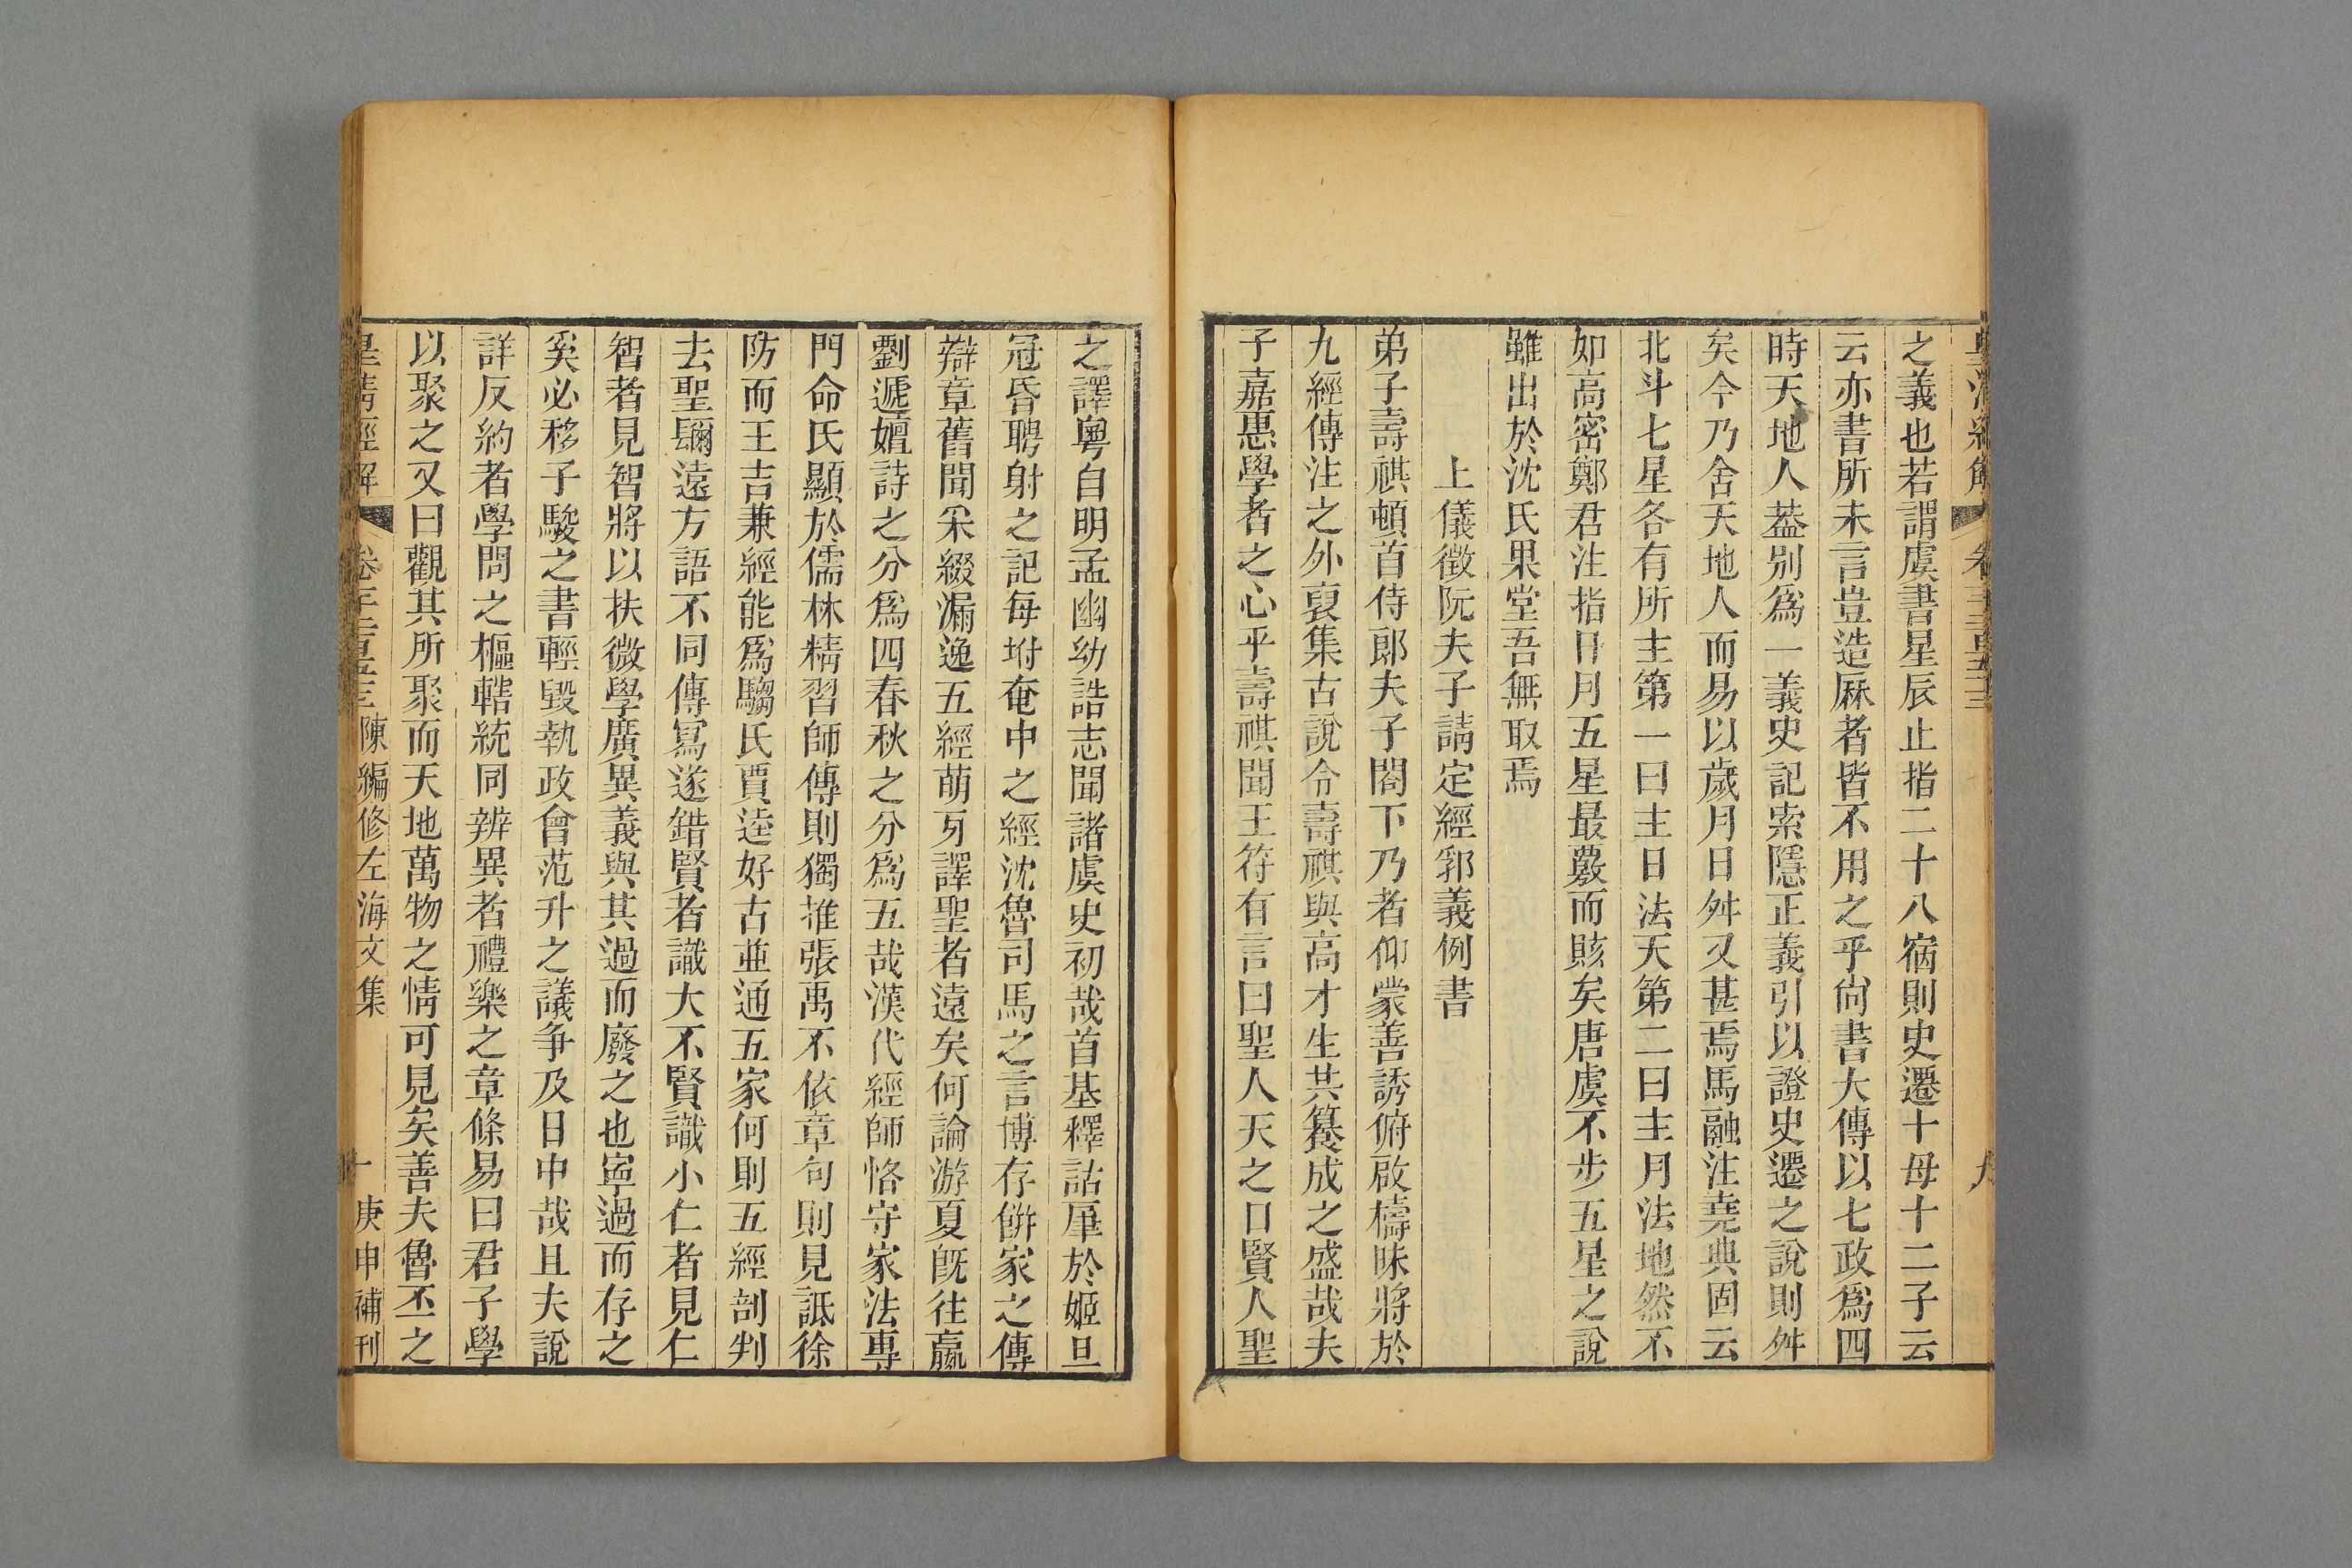 皇清經解 卷
之義也若謂虞書星辰止指二十八宿則史遷十母十二子云
云亦書所未言豈造厤者皆不用之乎尙書大傳以七政爲四
時天地人葢别爲一義史記索隱正義引以證史遷之說則舛
矣今乃舍天地人而易以歲月日舛又甚焉馬融注堯典固云
北斗七星各有所主第一曰主日法天第二曰主月法地然不
如高密鄭君注指日月五星最覈而賅矣唐虞不步五星之說
雖出於沈氏果堂吾無取焉
上儀徵阮夫子請定經郛義例書
弟子壽祺頓首侍郞夫子閤下乃者仰蒙善誘俯啟檮昧將於
九經傳注之外裒集古說令壽祺與高才生共纂成之盛哉夫
子嘉惠學者之心乎壽祺聞王符有言曰聖人天之口賢人聖
之譯粤自明孟幽幼誥志聞諸虞史初哉首基釋詁肇於姬旦
冠昏聘射之記每坿奄中之經沈魯司馬之言博存餠家之傳
辯章舊聞采綴漏逸五經萌芽譯聖者遠矣何論游夏旣往嬴
劉遞嬗詩之分爲四春秋之分爲五哉漢代經師恪守家法專
門命氏顯於儒林精習師傳則獨推張禹不依章句則見詆徐
防而王吉兼經能爲騶氏賈逵好古並通五家何則五經剖判
去聖彌遠方語不同傳寫遂錯賢者識大不賢識小仁者見仁
智者見智將以扶微學廣異義與其過而廢之也寧過而存之
奚必移子駿之書輕毀執政會范升之議争及日中哉且夫說
詳反約者學問之樞轄統同辨異者禮樂之章條易曰君子學
以聚之又曰觀其所聚而天地萬物之情可見矣善夫魯丕之
皇清經解 卷 陳編修左海文集 一 庚申補刊